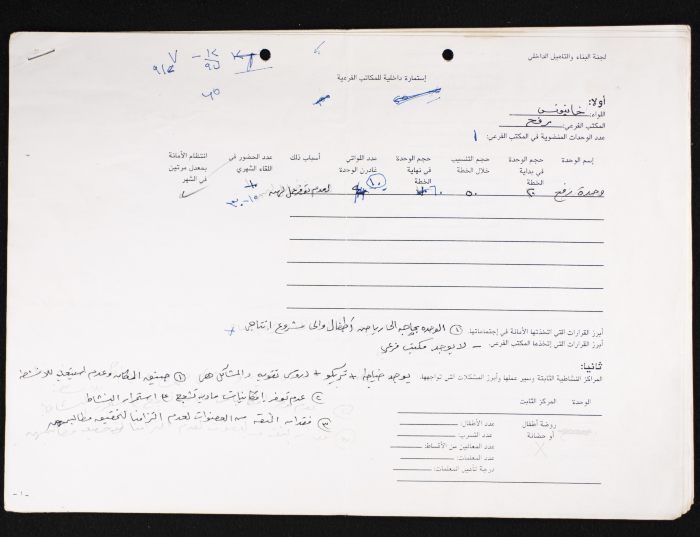 لجنة البناء والتأهيل الداخلي
إستمارة داخلية للمكاتب الفرعية
أولا:
اللواء: خانيونس
المكتب الفرعي: رفح
عدد الوحدات المنضوية في المكتب الفرعي: ١
إسم الوحدة
حجم الوحدة في بداية الخطة
حجم التنسيب خلال الخطة
حجم الوحدة في نهاية الخطة
عدد اللواتي غادرن الوحدة
أسباب ذلك
عدد الحضور في اللقاء الشهري
انتظام الأمانة بمعدل مرتين في الشهر
وحدة رفح ٢٠ ٥٠ ٦٠ ١٠
أبرز القرارات التي اتخذتها الأمانة في إجتماعاتها: ① الوحده بحاجه الى رياض أطفال والى مشروع انتاجي
أبرز القرارات التي إتخذها المكتب الفرعي: - لا يوجد مكتب فرعي
ثانيا:
المراكز النشاطية الثابتة وسير عملها وأبرز المشكلات التي تواجهها. يوجد خياطه + تريكو + دروس تقويه والمشاكل هي ① ضيق المكان وعدم للانشطة
② عدم توفر إمكانيات ماديه استمرار النشاط
③ فقدان الثقه من العضوات لعدم التزامنا لتحقيق مطالبهن
الوحدة
المركز الثابت
روضة أطفال أو حضانة
عدد الأطفال:
عدد التسرب:
عدد المعانين من الأقساط:
عدد المعلمات:
درجة تأهيل المعلمات:
- ١ -